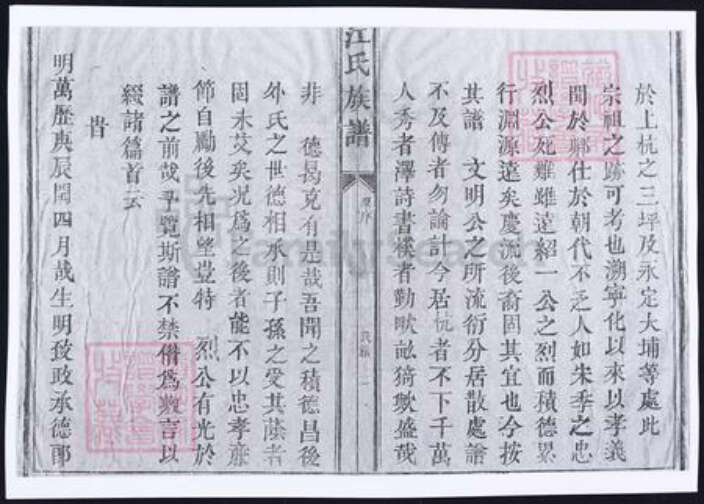 於上杭之三坪及永定大埔等處此
宗祖之跡可考也溯寧化以來以孝義
聞於鄉仕於朝代不乏人如朱季之忠
烈公死難雖遠紹一公之烈而積德累
行淵源遠矣慶流後裔固其宜也今按
其譜 文明公之所流衍分居散處譜
不及傳者勿論計今居杭者不下千萬
人秀者澤詩書樸者勤畎畝猗歟盛哉
江氏族譜
原序
非 德曷克有是哉吾聞之積德昌後
外氏之世德相承則子孫之受其蔭者
固未艾矣况為之後者能不以忠孝廉
節自勵後先相望豈特 烈公有光於
譜之前哉予覽斯譜不禁僭為數言以
綴諸篇首云
旹
明萬歷庚辰閏四月哉生明致政承德郎